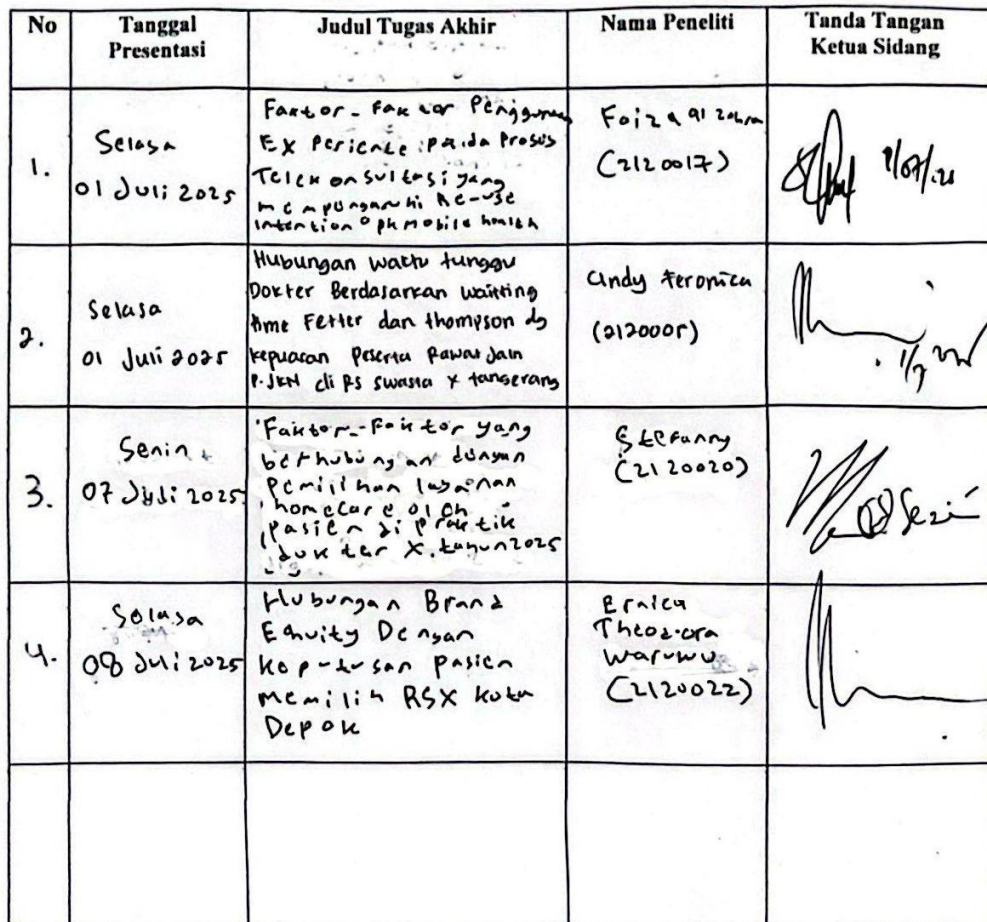 No
Tanggal Presentasi
Judul Tugas Akhir
Nama Peneliti
Tanda Tangan Ketua Sidang
1.
Selasa
01 Juli 2025
Faktor-Faktor Pengguna
Experience pada Proses
Telekonsultasi yang
mempengaruhi Re-use
intention mobile health
Faiza al zahra
(2120017)
2.
Selasa
01 Juli 2025
Hubungan waktu tunggu
Dokter Berdasarkan waitting
time Fetter dan thompson dg
kepuasan Peserta Rawat Jalan
P.JKN di RS swasta x tangerang
Cindy Feronica
(2120005)
1/7
3.
Senin
07 Juli 2025
Faktor-Faktor yang
berhubungan dengan
Pemilihan layanan
homecare oleh
pasien di praktik
dokter X. tahun 2025
Stefanny
(2120020)
4.
Selasa
08 Juli 2025
Hubungan Brand
Equity Dengan
Keputusan pasien
memilih RSX Kota
Depok
Ernica
Theodora
Waruwu
(2120022)